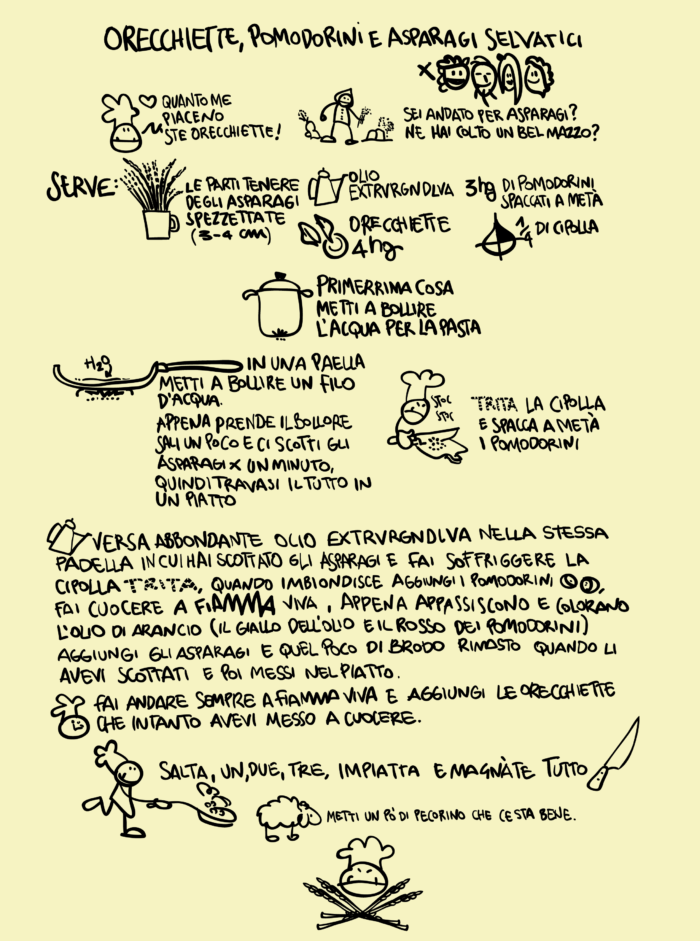 ORECCHIETTE, POMODORINI E ASPARAGI SELVATICI
X
QUANTO ME
PIACENO
STE ORECCHIETTE!
SEI ANDATO PER ASPARAGI?
NE HAI COLTO UN BEL MAZZO?
SERVE:
LE PARTI TENERE
DEGLI ASPARAGI
SPEZZETTATE
(3-4 CM)
OLIO
EXTRVRGNDLVA
3hg DI POMODORINI
SPACCATI A METÀ
ORECCHIETTE
4hg
1/4 DI CIPOLLA
PRIMERRIMA COSA
METTI A BOLLIRE
L'ACQUA PER LA PASTA
H2O
IN UNA PAELLA
METTI A BOLLIRE UN FILO
D'ACQUA.
APPENA PRENDE IL BOLLORE
SALI UN POCO E CI SCOTTI GLI
ASPARAGI X UN MINUTO,
QUINDI TRAVASI IL TUTTO IN
UN PIATTO
STOC
STOC
TRITA LA CIPOLLA
E SPACCA A METÀ
I POMODORINI
VERSA ABBONDANTE OLIO EXTRVRGNDLVA NELLA STESSA
PADELLA IN CUI HAI SCOTTATO GLI ASPARAGI E FAI SOFFRIGGERE LA
CIPOLLA TRITA, QUANDO IMBIONDISCE AGGIUNGI I POMODORINI,
FAI CUOCERE A FIAMMA VIVA, APPENA APPASSISCONO E COLORANO
L'OLIO DI ARANCIO (IL GIALLO DELL'OLIO E IL ROSSO DEI POMODORINI)
AGGIUNGI GLI ASPARAGI E QUEL POCO DI BRODO RIMASTO QUANDO LI
AVEVI SCOTTATI E POI MESSI NEL PIATTO.
FAI ANDARE SEMPRE A FIAMMA VIVA E AGGIUNGI LE ORECCHIETTE
CHE INTANTO AVEVI MESSO A CUOCERE.
SALTA, UN, DUE, TRE, IMPIATTA E MAGNÀTE TUTTO
METTI UN PO' DI PECORINO CHE CE STA BENE.